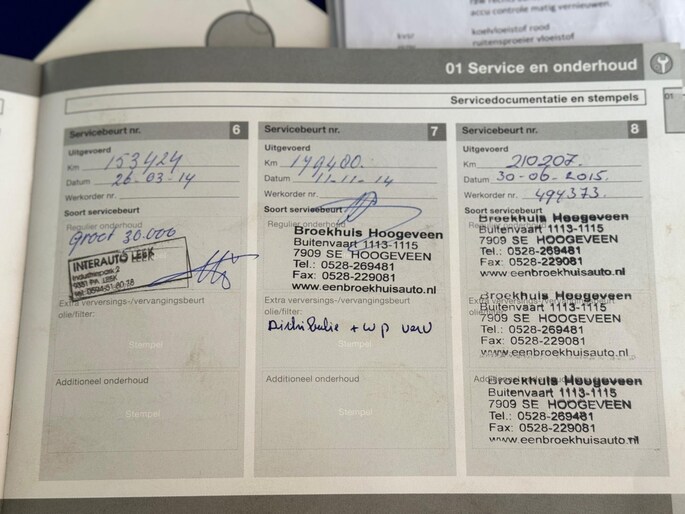 accu controle matig vernieuwen.
koelvloeistof rood
ruitensproeier vloeistof
01 Service en onderhoud
Servicedocumentatie en stempels
01
Servicebeurt nr. 6
Uitgevoerd
Km 153424
Datum 26-03-14
Werkorder nr.
Soort servicebeurt
Regulier onderhoud
Groot 30.000
INTERAUTO LEEK
Industriepark 2
Extra verversings-/vervangingsbeurt
olie/filter:
Stempel
Additioneel onderhoud
Stempel
Servicebeurt nr. 7
Uitgevoerd
Km 179400.
Datum 11-11-14
Werkorder nr.
Soort servicebeurt
Regulier onderhoud
Broekhuis Hoogeveen
Buitenvaart 1113-1115
7909 SE HOOGEVEEN
Tel.: 0528-269481
Fax: 0528-229081
www.eenbroekhuisauto.nl
Extra verversings-/vervangingsbeurt
olie/filter:
Distributie + wp verv
Stempel
Additioneel onderhoud
Stempel
Servicebeurt nr. 8
Uitgevoerd
Km 210207.
Datum 30-06-2015.
Werkorder nr. 494373.
Soort servicebeurt
Broekhuis Hoogeveen
Buitenvaart 1113-1115
7909 SE HOOGEVEEN
Tel.: 0528-269481
Fax: 0528-229081
www.eenbroekhuisauto.nl
Broekhuis Hoogeveen
Buitenvaart 1113-1115
7909 SE HOOGEVEEN
Tel.: 0528-269481
Fax: 0528-229081
www.eenbroekhuisauto.nl
Broekhuis Hoogeveen
Buitenvaart 1113-1115
7909 SE HOOGEVEEN
Tel.: 0528-269481
Fax: 0528-229081
www.eenbroekhuisauto.nl